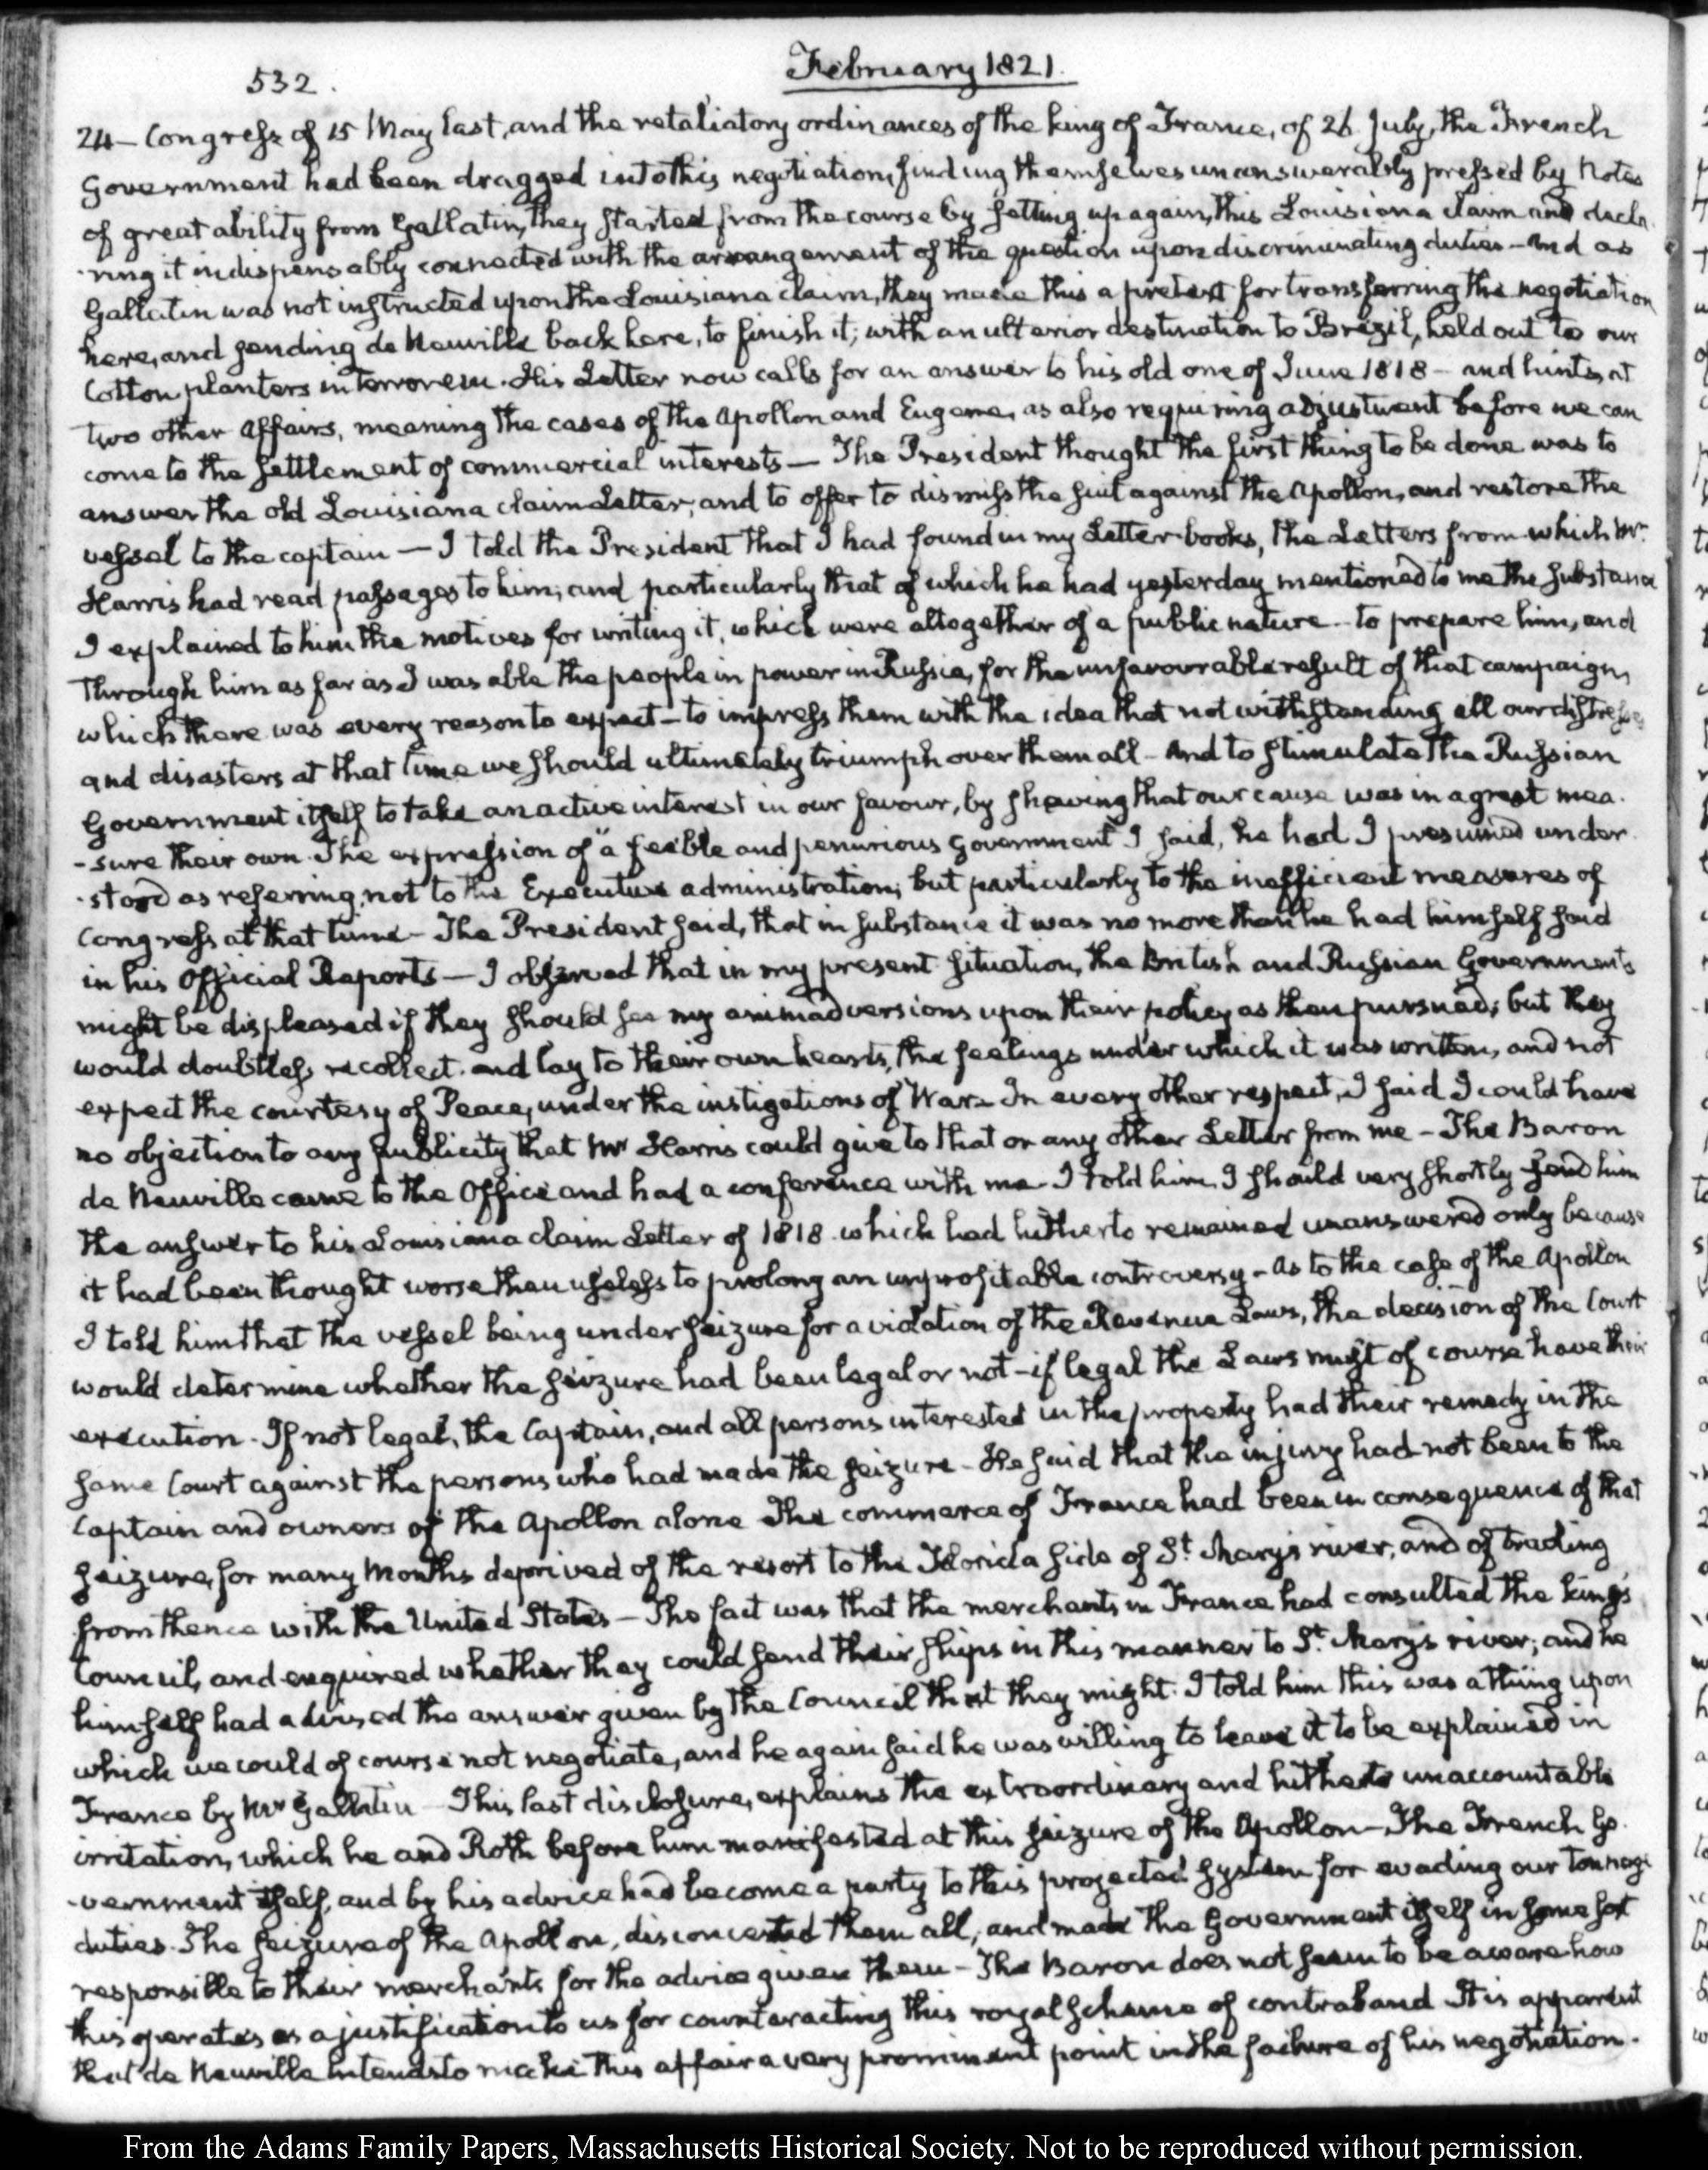 532.
February 1821.
24— Congress of 15 May last, and the retaliatory ordinances of the king of France, of 26. July, the French
Government had been dragged into this negotiation, finding themselves unanswerably pressed by Notes
of great ability from Gallatin, they started from the course by setting up again, this Louisiana claim and decla-
-ring it indispensably connected with the arrangement of the question upon discriminating duties— And as
Gallatin was not instructed upon the Louisiana claim, they made this a pretext for transferring the negotiation
here, and sending de Neuville back here, to finish it; with an ulterior destination to Brazil, held out to our
Cotton planters in terrorem. His Letter now calls for an answer to his old one of June 1818— and hints, at
two other affairs, meaning the cases of the Apollon and Eugene, as also requiring adjustment before we can
come to the settlement of commercial interests— The President thought the first thing to be done was to
answer the old Louisiana claim Letter; and to offer to dismiss the suit against the Apollon, and restore the
vessel to the captain— I told the President that I had found in my Letter-books, the Letters from which Mr.
Harris had read passages to him; and particularly that of which he had yesterday mentioned to me the substance
I explained to him the motives for writing it, which were altogether of a public nature— to prepare him, and
through him as far as I was able the people in power in Russia, for the unfavourable result of that campaign,
which there was every reason to expect— to impress them with the idea that notwithstanding all our distresses
and disasters at that time we should ultimately triumph over them all— And to stimulate the Russian
Government itself to take an active interest in our favour, by shewing that our cause was in a great mea-
-sure their own. The expression of "a feeble and penurious Government" I said, he had I presumed under-
-stood as referring, not to the Executive administration; but particularly to the inefficient measures of
Congress at that time— The President said, that in substance it was no more than he had himself said
in his Official Reports— I observed that in my present situation, the British and Russian Governments
might be displeased if they should see my animadversions upon their policy as then pursued; but they
would doubtless recollect, and lay to their own hearts, the feelings under which it was written, and not
expect the courtesy of Peace, under the instigations of War— In every other respect, I said I could have
no objection to any publicity that Mr Harris could give to that or any other Letter from me— The Baron
de Neuville came to the Office and had a conference with me— I told him, I should very shortly send him
the answer to his Louisiana claim Letter of 1818 which had hitherto remained unanswered only because
it had been thought worse than useless to prolong an unprofitable controversy— As to the case of the Apollon
I told him that the vessel being under seizure for a violation of the Revenue Laws, the decision of the Court
would determine whether the seizure had been legal or not— if legal the Laws must of course have their
execution. If not legal, the Captain, and all persons interested in the property had their remedy in the
same Court against the persons who had made the seizure— He said that the injury had not been to the
Captain and owners of the Apollon alone The commerce of France had been in consequence of that
seizure, for many Months deprived of the resort to the Florida side of St. Mary's river, and of trading
from thence with the United States— The fact was that the merchants in France had consulted the king's
Council, and enquired whether they could send their ships in this manner to St. Mary's river; and he
himself had advised the answer given by the Council that they might. I told him this was a thing upon
which we could of course not negotiate, and he again said he was willing to leave it to be explained in
France by Mr Gallatin— This last disclosure, explains the extraordinary and hitherto unaccountable
irritation, which he and Roth before him manifested at this seizure of the Apollon— The French Go-
-vernment itself, and by his advice had become a party to this projected system for evading our tonnage
duties. The seizure of the Apollon, disconcerted them all, and made the Government itself in some sort
responsible to their merchants for the advice given them— The Baron does not seem to be aware how
this operates as a justification to us for counteracting this royal scheme of contraband It is apparent
that de Neuville intends to make this affair a very prominent point in the failure of his negotiation.
From the Adams Family Papers, Massachusetts Historical Society. Not to be reproduced without permission.